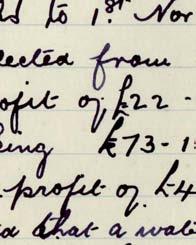 to 1.st Nov
lected from
ofit of £22 -
ing £73-1
profit of £4
d that a wali